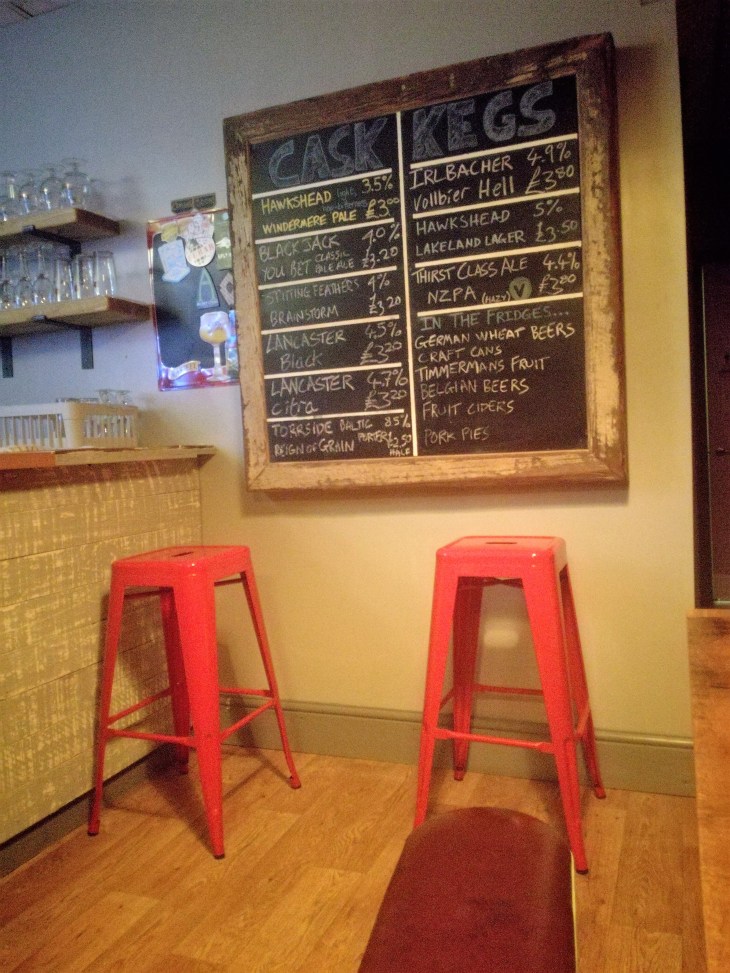 CASK
HAWKSHEAD 3.5%
WINDERMERE PALE £3.00
BLACK JACK 4.0%
YOU BET CLASSIC PALE ALE £3.20
STITTING FEATHERS 4%
BRAINSTORM £3.20
LANCASTER 4.5%
Black £3.20
LANCASTER 4.7%
Citra £3.20
TORRSIDE BALTIC 8.5%
REIGN OF GRAIN PORTER £2.50
HALF
KEGS
IRLBACHER 4.9%
Vollbier Hell £3.80
HAWKSHEAD 5%
LAKELAND LAGER £3.50
THIRST CLASS ALE 4.4%
NZPA (HAZY) V £3.80
IN THE FRIDGES....
GERMAN WHEAT BEERS
CRAFT CANS
TIMMERMANS FRUIT
BELGIAN BEERS
FRUIT CIDERS
PORK PIES